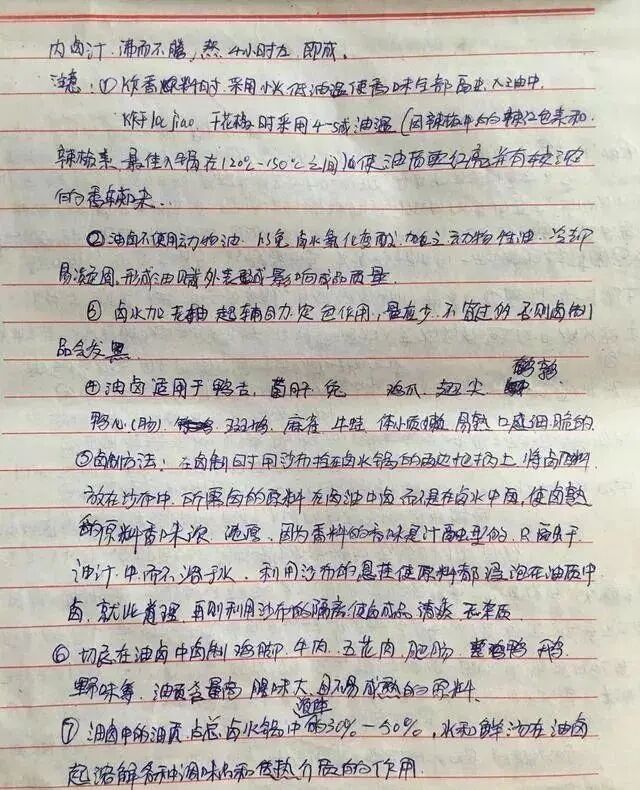 内卤汁沸而不腾,熬4小时左 即成。
注意:①炒香原料时采用小火低油温使香味全部 入油中
对于la jiao、干花椒时采用4-5成油温(因辣椒中的辣红色素和
辣椒素,最佳 在120℃-150℃之间)以使油质更红亮并有较浓
的香辣味..
②油卤不使用动物油,以免卤水氧化变酸,加之动物性油,冷却
易凝固,形成油 外表 影响成品质量.
③卤水加老抽起辅助定色作用,量应少,不宜过多否则卤制
品会发黑
④油卤适用于鸭舌, 肝 兔 鸡爪、翅尖 鹌鹑
鸭心(肠)、 麻雀 牛蛙 体小质嫩 易熟口感细脆的
⑤卤制方法:在卤制时用沙布拴在卤水锅的两边 上,将卤原料
放在纱布中,所需卤的原料在卤油中卤而不是在卤水中卤,使卤熟
的原料香味浓 ,因为香料的香味是 型的,只 于
油汁中而不溶于水,利用沙布的悬挂使原料都浸泡在油质中
卤,就此道理,再则利用沙布的隔离使卤成品清爽 无杂质.
⑥切忌在油卤中卤制鸡脚、牛肉、五花肉、肥肠、整鸡鸭 鹅
野味等,油质含量高 腥味大且不易成熟的原料.
⑦油卤中的油质占总卤水锅中 的30%-50%,水和鲜汤在油卤
起溶解各种调味品和传热介质的作用.